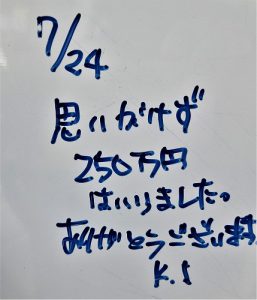 7/24
思いがけず
250万円
はいりました。
ありがとうございます
K.S